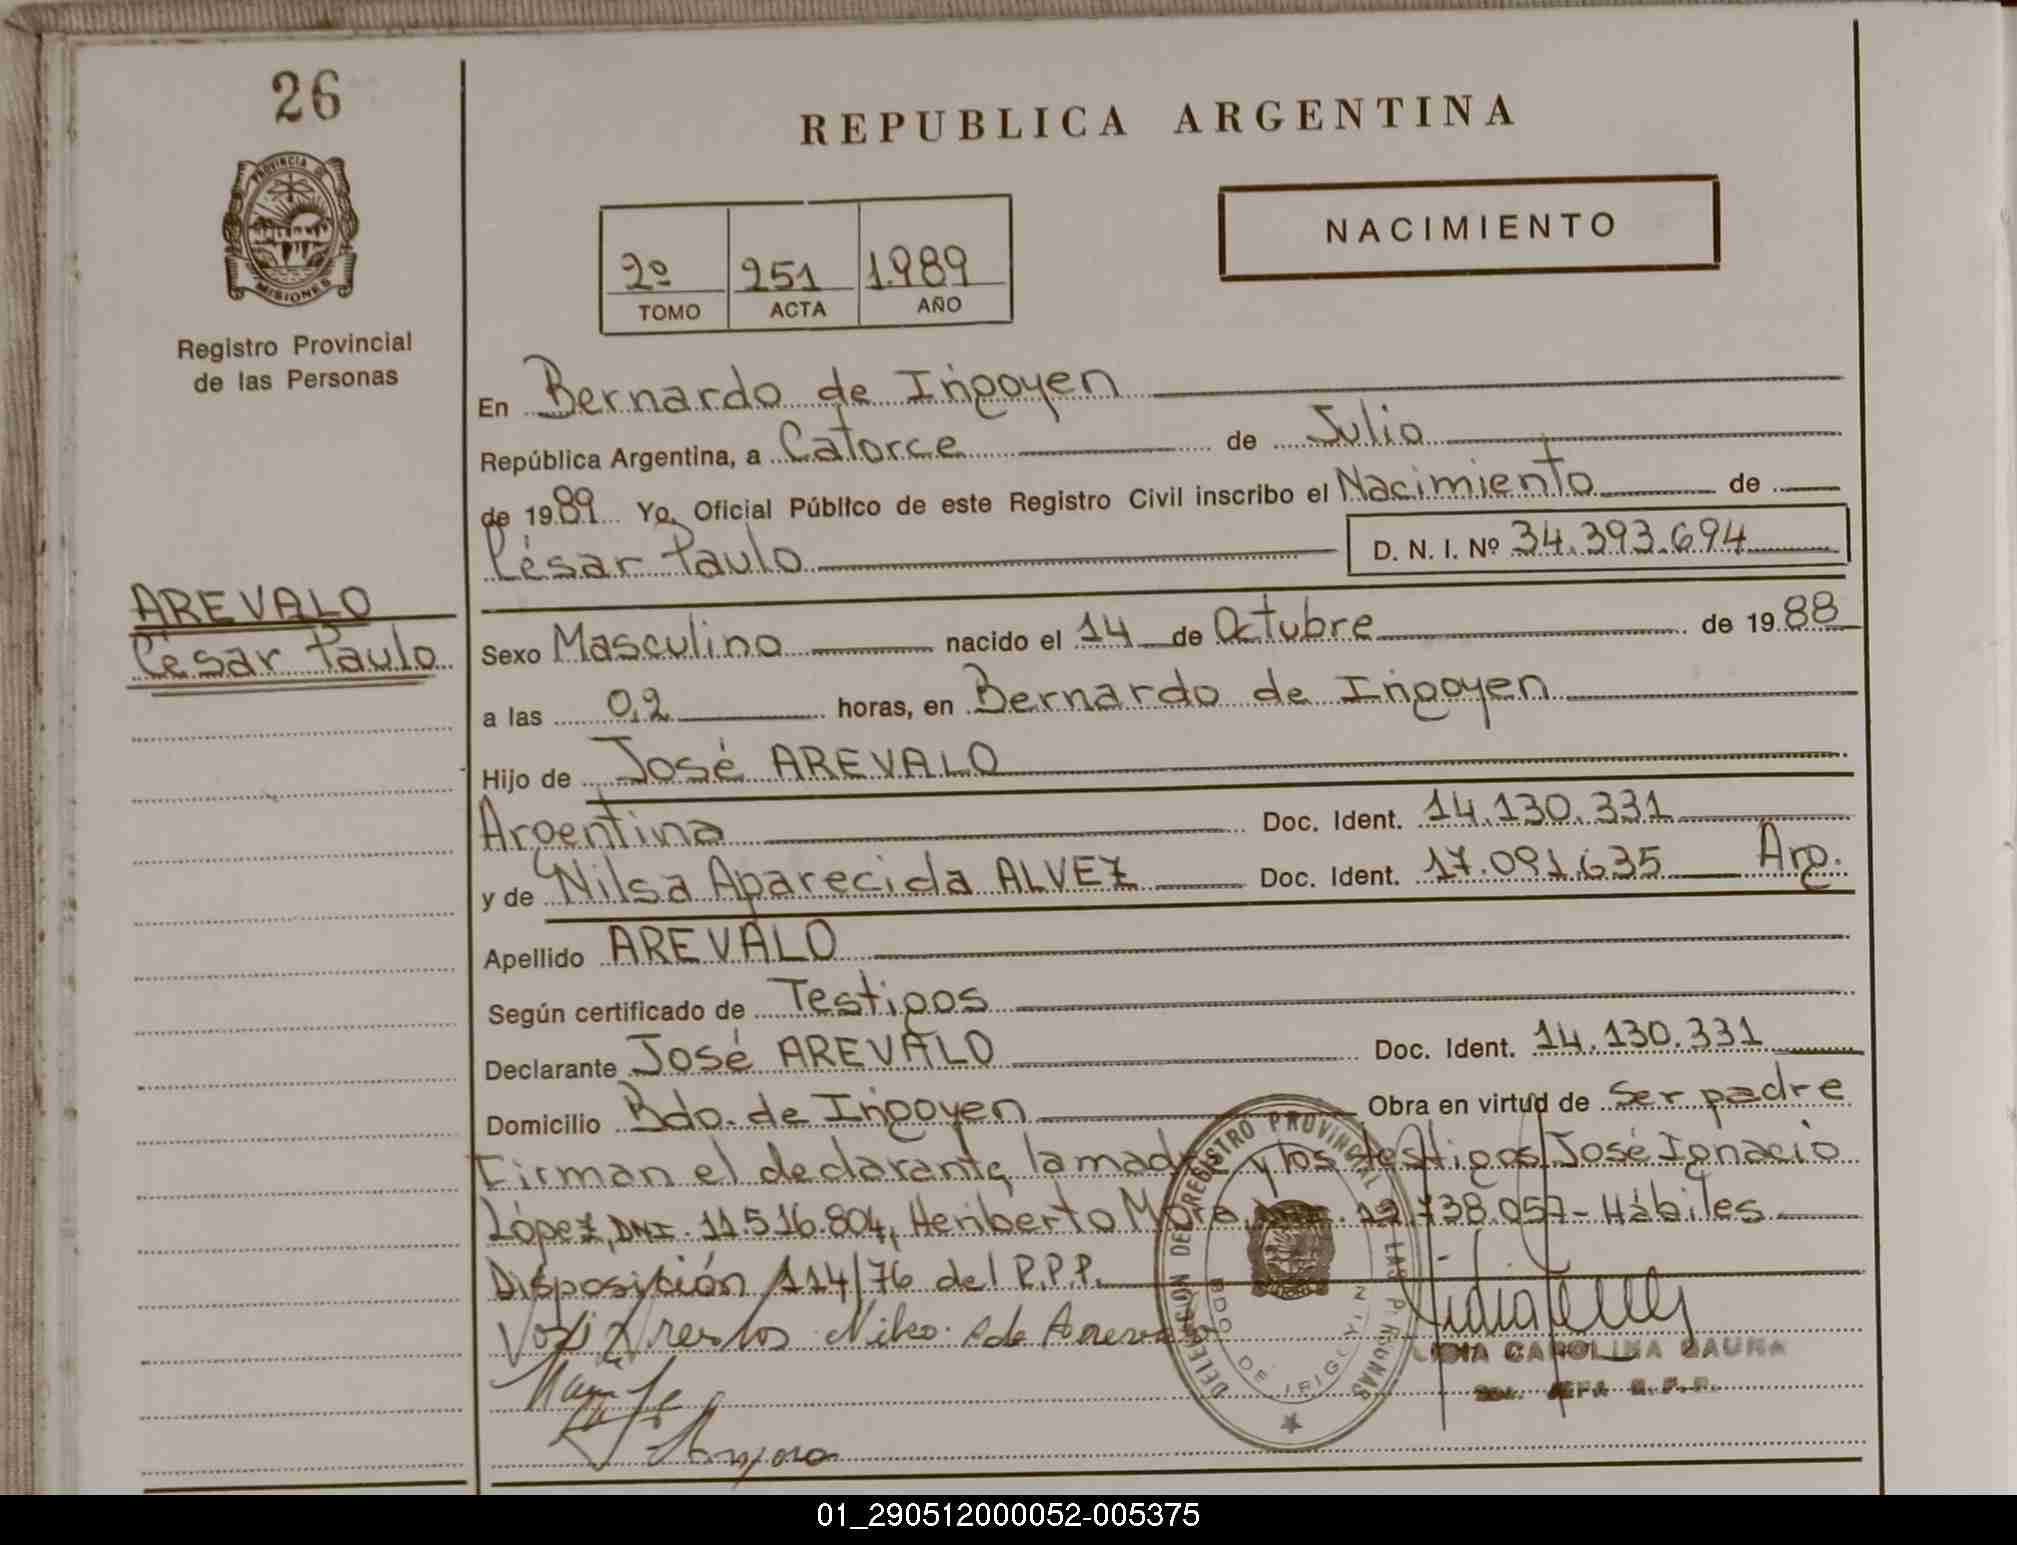 26
REPUBLICA ARGENTINA
PROVINCIA DE
MISIONES
Registro Provincial
de las Personas
NACIMIENTO
2º 251 1.989
TOMO ACTA AÑO
En Bernardo de Irigoyen
República Argentina, a Catorce de Julio
de 1989 Yo, Oficial Público de este Registro Civil inscribo el Nacimiento de
César Paulo D. N. I. Nº 34.393.694
AREVALO
César Paulo
Sexo Masculino nacido el 14 de Octubre de 1988
a las 02 horas, en Bernardo de Irigoyen
Hijo de José AREVALO
Argentina Doc. Ident. 14.130.331
y de Nilsa Aparecida ALVEZ Doc. Ident. 17.091.635 Arg.
Apellido AREVALO
Según certificado de Testigos
Declarante José AREVALO Doc. Ident. 14.130.331
Domicilio Bdo. de Irigoyen Obra en virtud de ser padre
Firman el declarante, la madre y los testigos José Ignacio
López, DNI. 11.516.804, Heriberto Mora 12.738.057- Hábiles
Disposición 114/76 del R.P.P.
DELEGACION DEL REGISTRO PROVINCIAL DE LAS PERSONAS
BDO DE IRIGOYEN
LIDIA CAROLINA
JEFA R.P.P.
01_290512000052-005375